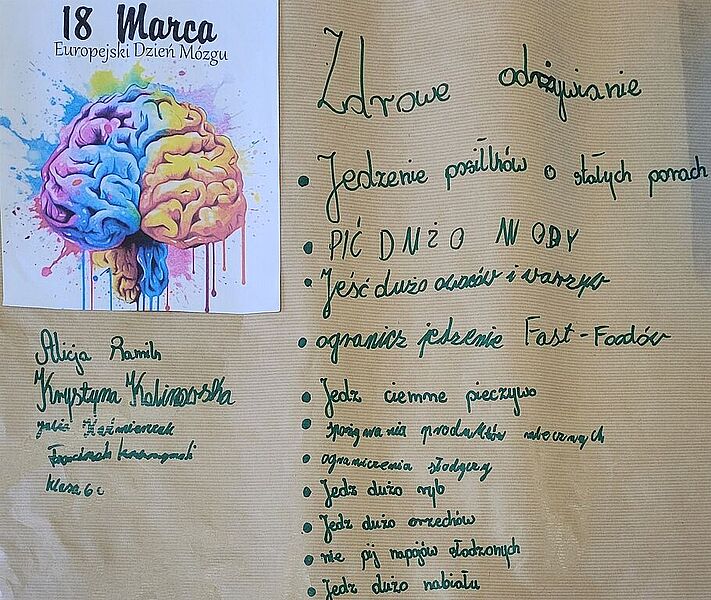 18 Marca
Europejski Dzień Mózgu
Zdrowe odżywianie
• Jedzenie posiłków o stałych porach
• PIĆ DUŻO WODY
• Jeść dużo owoców i warzyw
• ogranicz jedzenie Fast-Foodów
• Jedz ciemne pieczywo
• spożywania produktów mlecznych
• ograniczenia słodyczy
• Jedz dużo ryb
• Jedz dużo orzechów
• nie pij napojów słodzonych
• Jedz dużo nabiału
Alicja
Krystyna Kalinowska
Kaźmierczak
Franciszek
klasa 6c